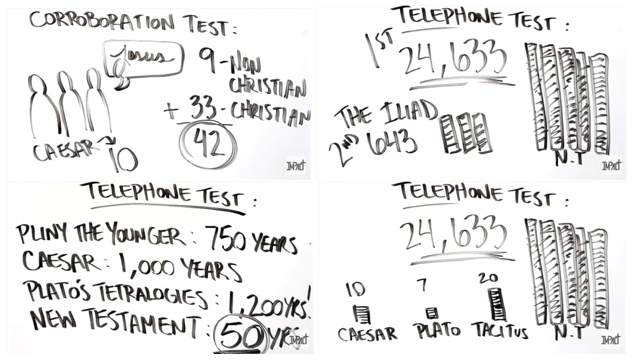 CORROBORATION TEST:
Jesus
9-NON
CHRISTIAN
+ 33-CHRISTIAN
42
CAESAR → 10
IMPACT
TELEPHONE TEST:
1ST
24,633
THE ILIAD
2ND 643
N.T
IMPACT
TELEPHONE TEST:
PLINY THE YOUNGER: 750 YEARS
CAESAR: 1,000 YEARS
PLATO'S TETRALOGIES: 1,200YRS!
NEW TESTAMENT: 50YRS
IMPACT
TELEPHONE TEST:
24,633
10 7 20
CAESAR PLATO TACITUS N.T
IMPACT